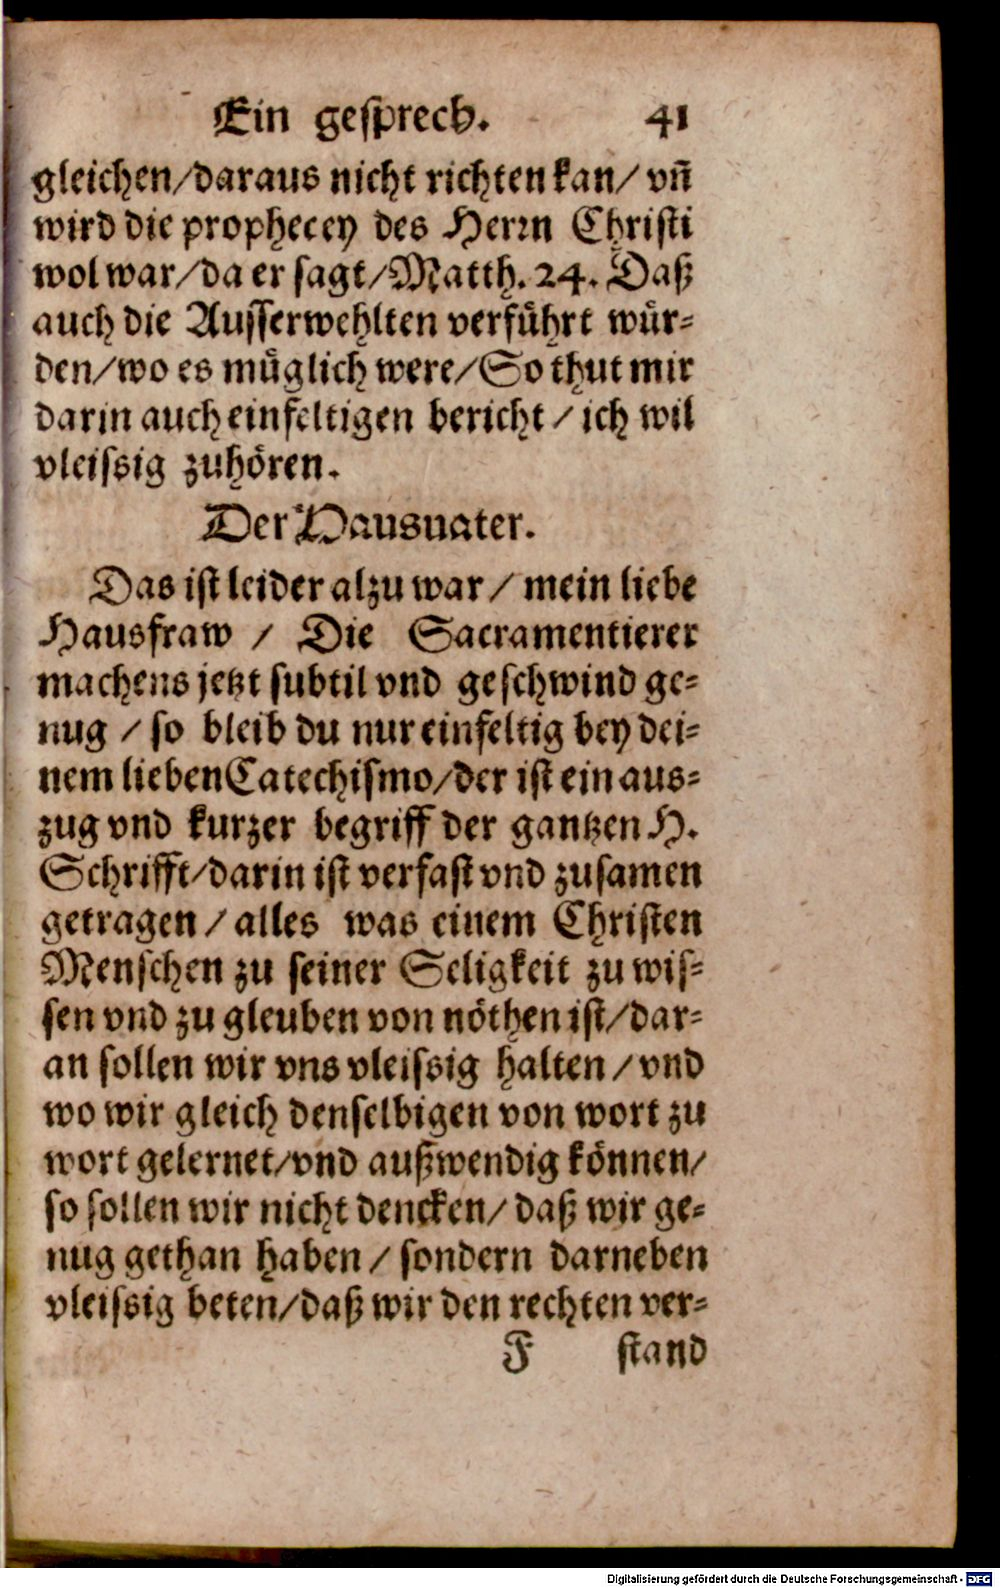 Ein gesprech. 41
gleichen/daraus nicht richten kan/ vñ
wird die prophecey des Herrn Christi
wol war/da er sagt/Matth. 24. Daß
auch die Ausserwehlten verführt wür-
den/wo es müglich were/So thut mir
darin auch einfeltigen bericht / ich wil
vleissig zuhören.
Der Hausuater.
Das ist leider alzu war / mein liebe
Hausfraw / Die Sacramentierer
machens jetzt subtil vnd geschwind ge-
nug / so bleib du nur einfeltig bey dei-
nem lieben Catechismo/der ist ein aus-
zug vnd kurzer begriff der gantzen H.
Schrifft/darin ist verfast vnd zusamen
getragen / alles was einem Christen
Menschen zu seiner Seligkeit zu wis-
sen vnd zu gleuben von nöthen ist/dar-
an sollen wir vns vleissig halten / vnd
wo wir gleich denselbigen von wort zu
wort gelernet/vnd außwendig können/
so sollen wir nicht dencken/ daß wir ge-
nug gethan haben / sondern darneben
vleissig beten/daß wir den rechten ver-
F stand
Digitalisierung gefördert durch die Deutsche Forschungsgemeinschaft - DFG